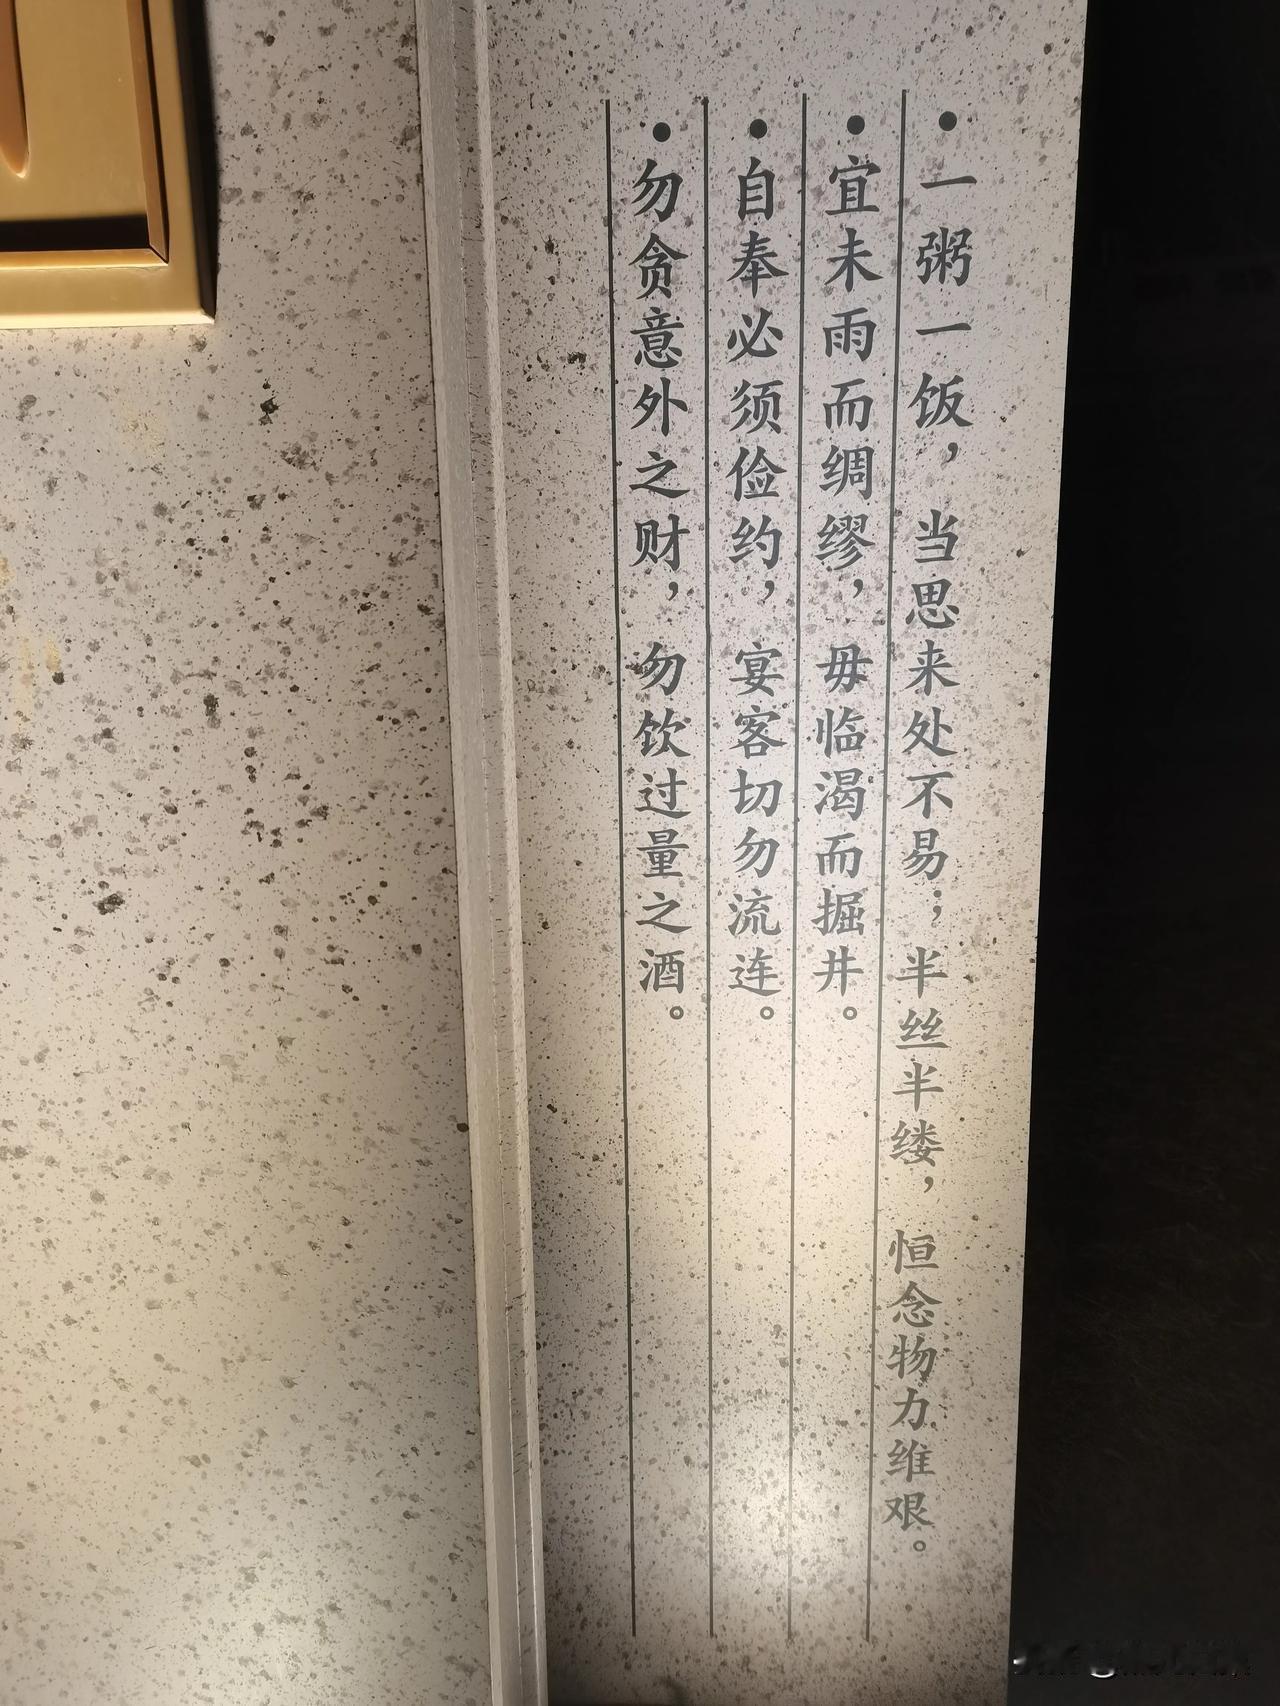 •一粥一饭，当思来处不易；半丝半缕，恒念物力维艰。
•宜未雨而绸缪，毋临渴而掘井。
•自奉必须俭约，宴客切勿流连。
•勿贪意外之财，勿饮过量之酒。